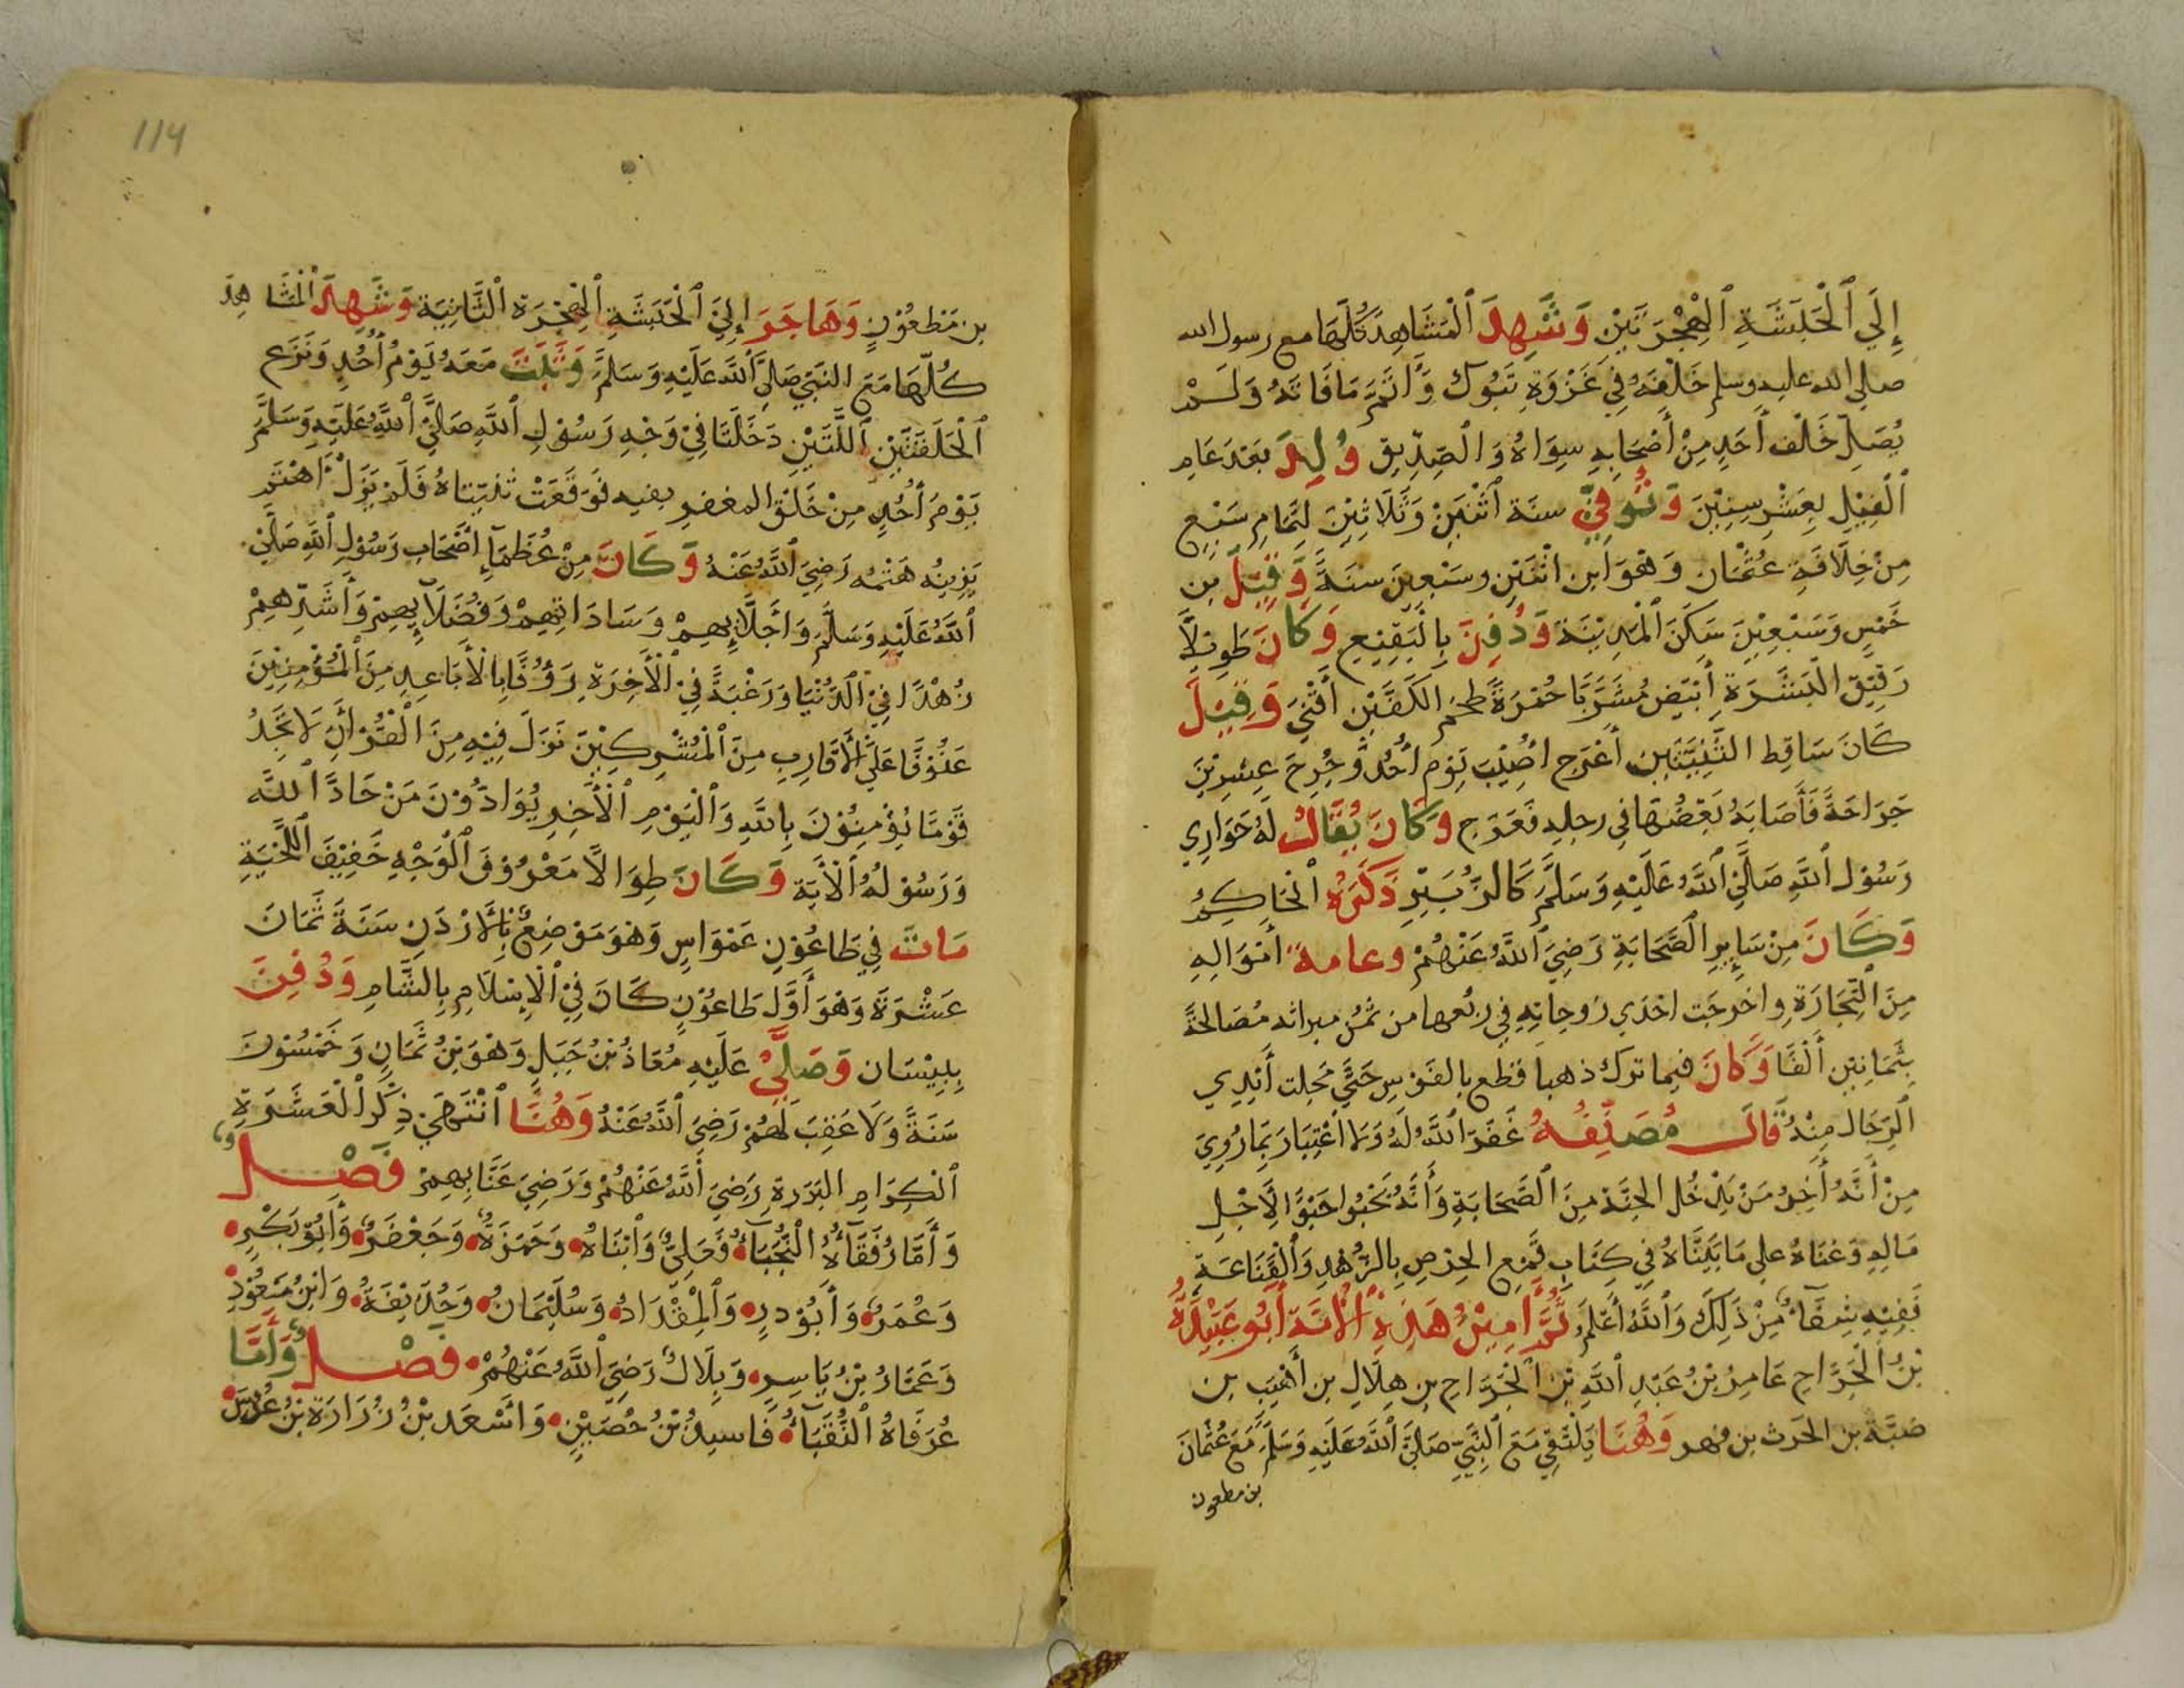 إِلَي ٱلْحَبَشَةِ ٱلْهِجْرَتَيْنِ وَشَهِدَ ٱلْمَشَاهِدَ كُلَّهَا مع رسول الله
صلى الله عليه وسلم خَلْفَهُ فِي غَزْوَةِ تَبُوكَ وَأَتَمَّ مَا فَاتَهُ وَلَمْ
يُصَلِّ خَلْفَ أَحَدٍ مِنْ أَصْحَابِهِ سِوَاهُ وَالصِّدِّيقِ وُلِدَ بَعْدَ عَامِ
ٱلْفِيْلِ بِعَشْرِ سِنِيْنَ وَتُوُفِيَّ سنة اثْنَيْنِ وَثَلَاثِيْنَ لِتَمَامِ سَبْعٍ
مِنْ خِلَافَةِ عُثْمَان وَهُوَ ابن اثْنَيْنِ وسَبْعِينَ سنَةً وَقِيْلَ بن
خَمْسٍ وَسَبْعِيْنَ سَكَنَ ٱلْمَدِيْنَةَ وَدُفِنَ بِالْبَقِيْعِ وَكَانَ طَوِيْلًا
رَقِيْقَ الْبَشَرَةِ أَبْيَضَ مُشَرَّبًا حُمْرَةً ضخم الكَفَّيْنِ أَقْنَي وَقِيْلَ
كَانَ سَاقِط الثَّنِيَّتَيْنِ أَعْرَج أُصِيْبَ يَوْم أُحُد وَجُرِحَ عِشْرِيْنَ
جَرَاحَةً فَأَصَابَهُ بَعْضُهَا في رجله فَعَرَج وَكَانَ يُقَالُ لَهُ حَوَارِي
رَسُوْلِ ٱللَّهِ صَلَّيٰ ٱللَّهُ عَلَيْهِ وَسَلَّمَ كَالزُّبَيْرِ ذَكَرَهُ ٱلْحَاكِمُ
وَكَانَ مِنْ سَايِرِ ٱلصَّحَابَةِ رَضِيَ ٱللَّهُ عَنْهُمْ وعامة أَمْوَالِهِ
مِنَ ٱلتِّجَارَةِ واخرجت احْدَي زوجاته في ربُعها من ثُمُن ميراثه مُصَالحَةً
بِثَمَانِيْنَ أَلْفًا وَكَانَ فيما ترك ذهبا قطع بالفوس حَتَّي مَجلت أَيْدِي
ٱلرِّجَال مِنْهُ قَالَ مُصَنِّفُهُ غَفَرَ ٱللَّهُ لَهُ وَلَا اعْتِبَارَ بِمَا رُوِيَ
مِنْ أَنَّهُ أَخِرُ مَنْ يَدْخُل الجنَّة مِنَ ٱلصَّحَابَةِ وَأَنَّهُ يَحْبُوا حَبْوًا لِأَجْلِ
مَالِهِ وَغِنَاهُ عَلي مَا بَيَّنَّاهُ فِي كِتَابِ قَمْعِ الحِرْصِ بِالزُّهْدِ وَٱلْقَنَاعَةِ
فَفِيْهِ شِفَآءٌ مِّنْ ذَلِكَ وَٱللَّهُ أَعْلَمُ ثُمَّ أَمِيْنُ هَذِهِ ٱلْأُمَّةِ أَبُو عُبَيْدَةُ
بْنُ ٱلْجَرَّاحِ عَامِرُ بْنُ عَبْدِ ٱللَّهِ بْنِ ٱلْجَرَّاحِ بن هِلَالِ بن أَهْيَبِ بن
ضبَّة بن الحرث بن فهر وَهُنَا يَلْتَقِي مَعَ ٱلنَّبِيِّ صَلَّيٰ ٱللَّهُ عَلَيْهِ وَسَلَّمَ مَعَ عُثْمَانَ
بن مظعون
114
بن مَظْعُوْنٍ وَهَاجَرَ إِلَيٰ ٱلْحَبَشَةِ ٱلْهِجْرَة ٱلثَّانِيَة وَشَهِدَ ٱلْمَشَاهِدَ
كُلّهَا مَعَ النَّبِيّ صَلَّيٰ ٱللَّهُ عَلَيْهِ وَسَلَّمَ وَثَبَتَ مَعَهُ يَوْمَ أُحُدٍ وَنَزَعَ
ٱلْحَلَقَتَيْنِ ٱللَّتَيْنِ دَخَلَتَا فِيْ وَجْهِ رَسُوْلِ ٱللَّهِ صَلَّيٰ ٱللَّهُ عَلَيْهِ وَسَلَّمَ
يَوْمَ أُحُدٍ مِنْ حَلَقِ المغفر بفيه فَوَقَعَتْ ثَنِيّتاهُ فَلَمْ يَزَلْ أَهْتَمَ
يَزِينُه هَتْمُه رَضِيَ ٱللَّهُ عَنْهُ وَكَانَ مِنْ عُظَمَآءِ أَصْحَابِ رَسُوْلِ ٱللَّهِ صَلَّيٰ
ٱللَّهُ عَلَيْهِ وَسَلَّمَ وَأَجَلَّائِهِمْ وَسَادَاتِهِمْ وَفُضَلَآئِهِمْ وَأَشَدِّهِمْ
زُهْدًا فِيْ ٱلدُّنْيَا وَرَغْبَةً فِيْ ٱلْأَخِرَةِ رَؤُفًا بِالْأَبَاعِدِ مِنَ ٱلْمُؤْمِنِيْنَ
عَنُوْفًا عَلَيٰ ٱلْأَقَارِبِ مِنَ ٱلْمُشْرِكِيْنَ نَزَلَ فِيْهِ مِنَ ٱلْقُرْأَنِ لَا تَجِدُ
قَوْمًا يُؤْمِنُوْنَ بِاللَّهِ وَٱلْيَوْمِ ٱلْأَخِرِ يُوَادُّوْنَ مَنْ حَادَّ ٱللَّهَ
وَرَسُوْلَهُ ٱلْأَيَة وَكَانَ طِوَالًا مَعْرُوْقَ ٱلْوَجْهِ خَفِيْفَ ٱللِّحْيَةِ
مَاتَ فِي طَاعُوْنِ عَمْوَاسٍ وَهُوَ مَوْضِعٌ بِالْأَرْدَنِ سَنَةَ ثَمَانَ
عَشْرَةَ وَهُوَ أَوَّلُ طَاعُوْنٍ كَانَ فِيْ ٱلْإِسْلَامِ بِالشَّامِ وَدُفِنَ
بِبِيْسَان وَصَلَّيٰ عَلَيْهِ مُعَاذُ بْنُ جَبَلٍ وَهُوَ بْنُ ثَمَانٍ وَخَمْسُوْنَ
سَنَةً وَلَا عَقِبَ لَهُمْ رَضِيَ ٱللَّهُ عَنْهُ وَهُنَا ٱنْتَهَيٰ ذِكْرُ ٱلْعَشَرَةِ
ٱلْكِرَامِ البَرَرَةِ رَضِيَ ٱللَّهُ عَنْهُمْ وَرَضِيَ عَنَّا بِهِمْ فَصْلٌ
وَأَمَّا رُفَقَآءُهُ ٱلنُّجَبَآءُ فَعَلِيٌّ وَٱبْنَاهُ وَحَمْزَةُ وَجَعْفَرٌ وَأَبُوْ بَكْرٍ
وَعُمَرُ وَأَبُوْ درٍ وَٱلْمِقْدَادُ وَسُلَيْمَانُ وَحُذَيْفَةُ وَابْنُ مَسْعُوْدٍ
وَعَمَّارُ بْنُ يَاسِرٍ وَبِلَالٌ رَضِيَ ٱللَّهُ عَنْهُمْ فَصْلٌ وَأَمَّا
عُرَفَاهُ ٱلنُّقَبَآءُ فَاسيدُ بْنُ حُضَيْرٍ وَأَسْعَد بْنُ زُرَارَةَ بْنُ عُدُسَ